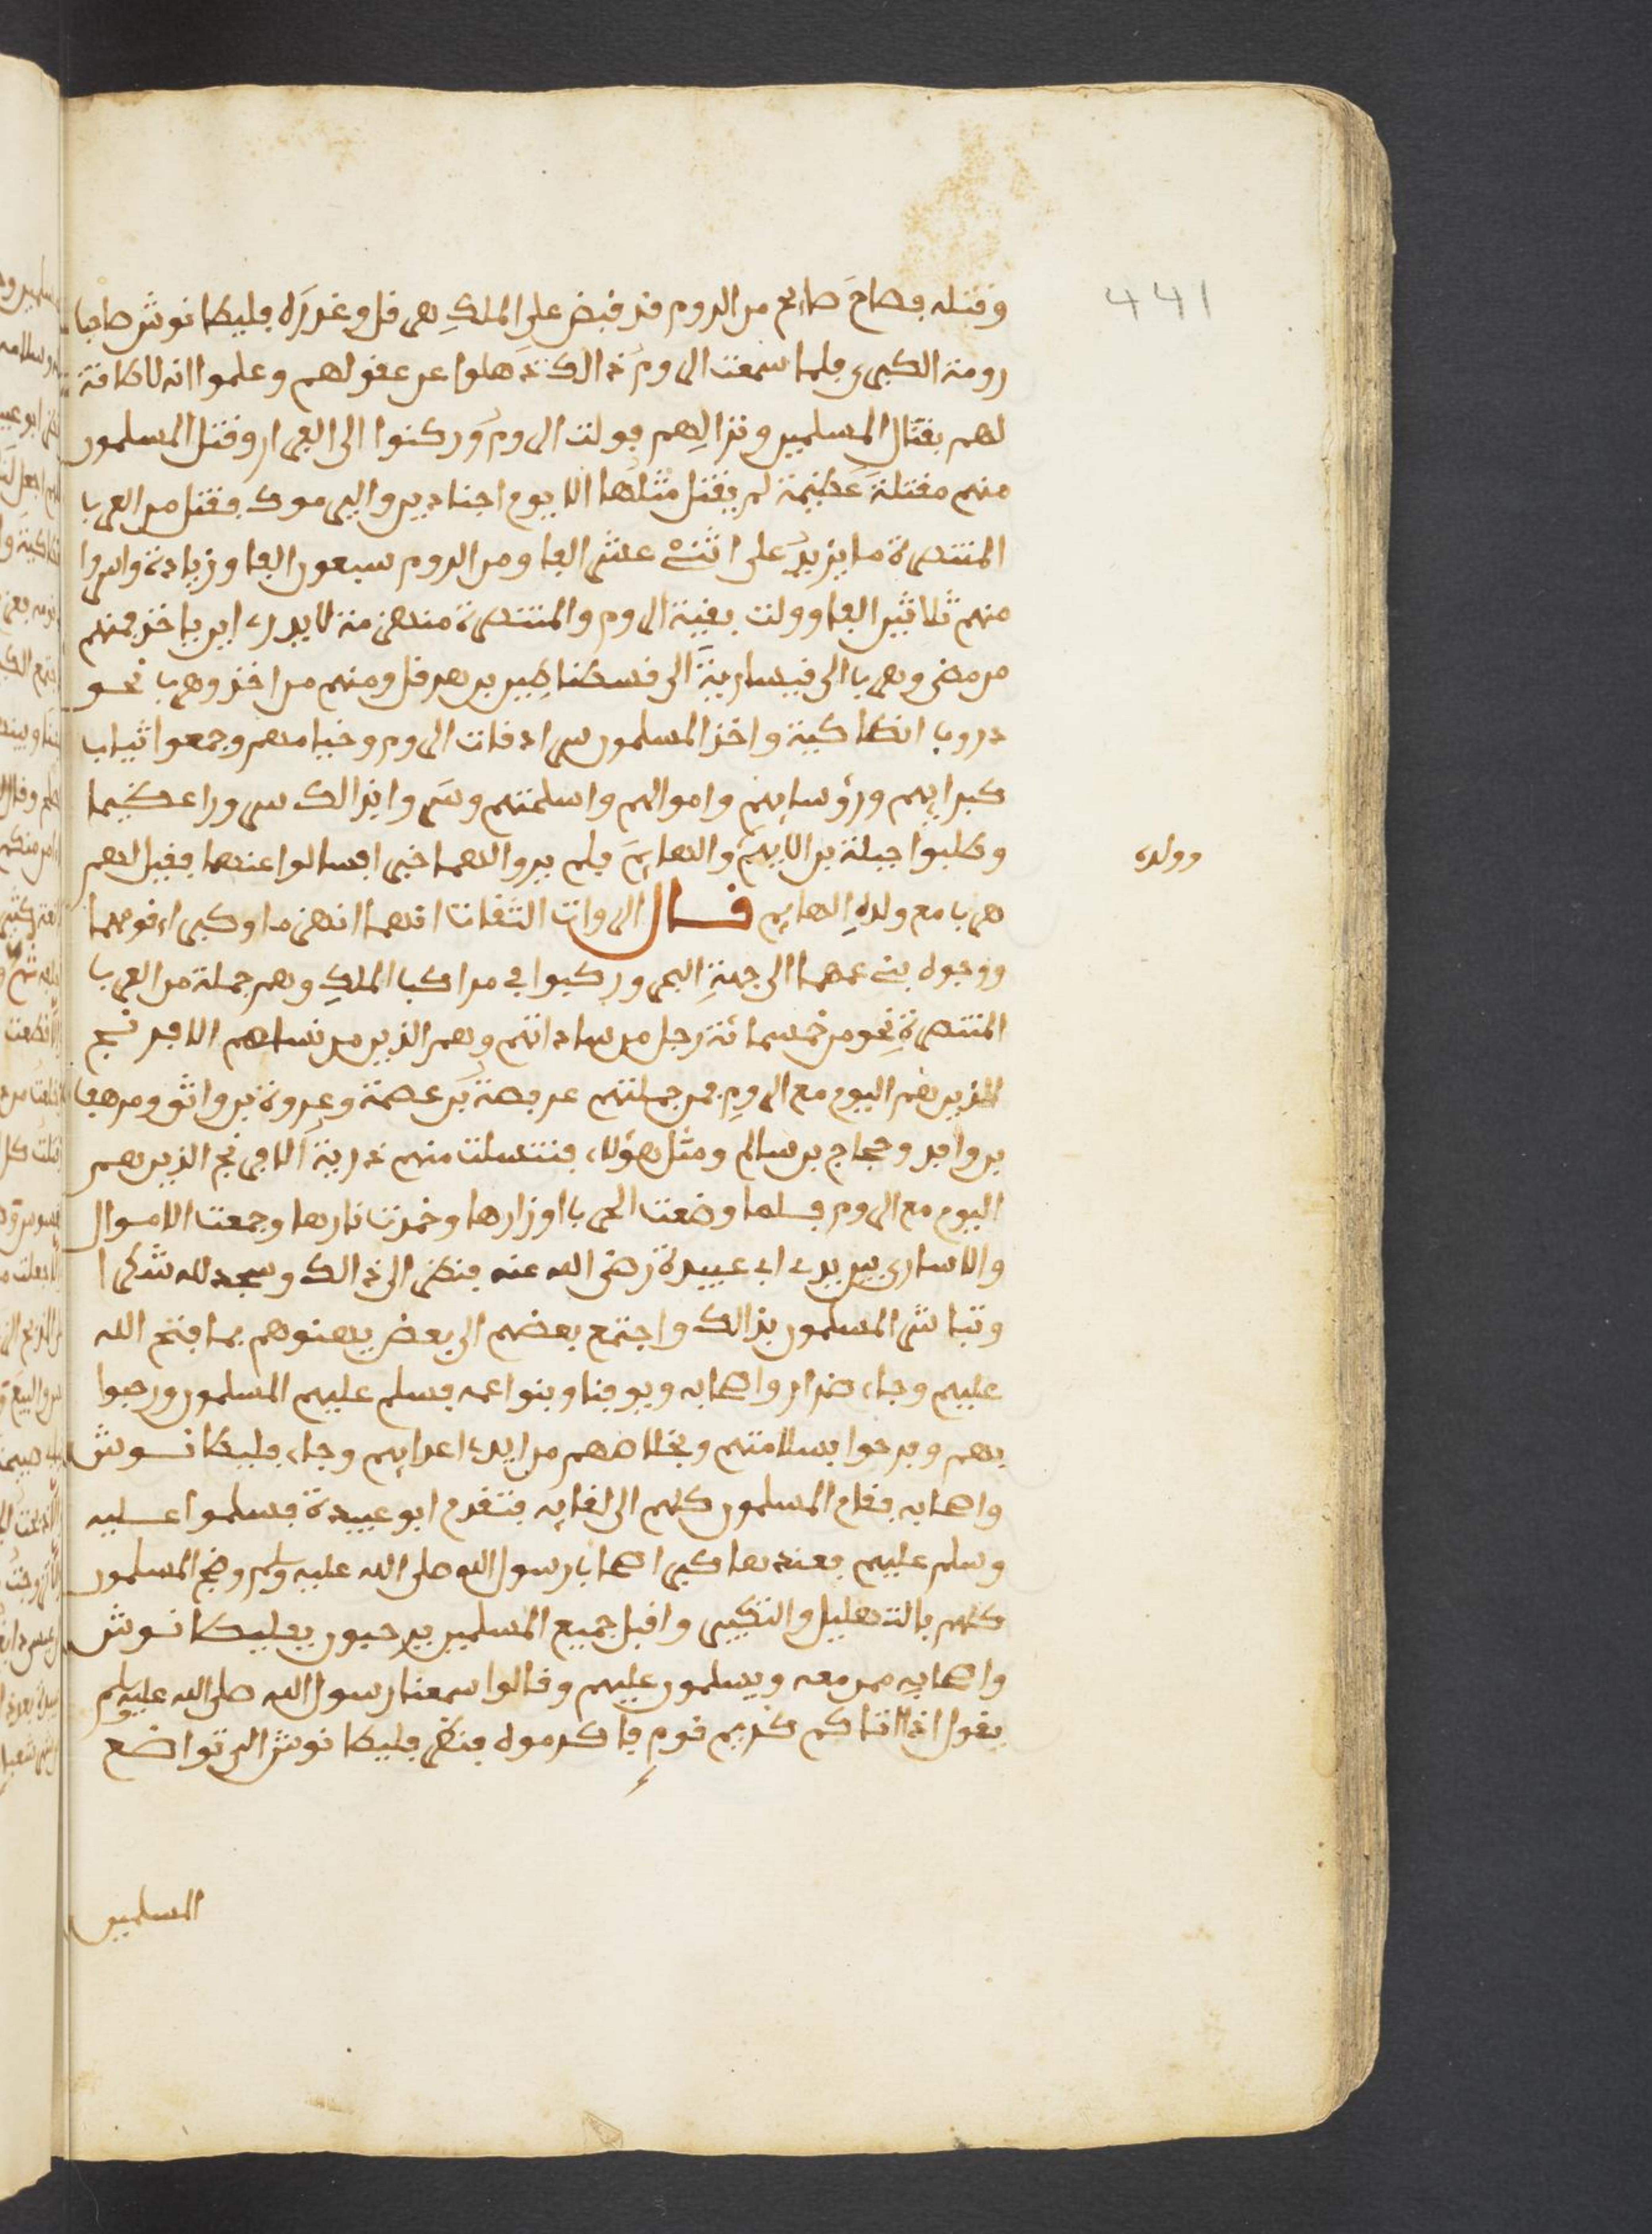 441
وقتله فصاح صائح من الروم قد قبض على الملك هرقل وغدره فليطانوش صاحب
رومة الكبرى فلما سمعت الروم ذالك ذهلوا عن عقولهم وعلموا انه لا طاقة
لهم بقتال المسلمين ونزالهم فولت الروم وركنوا الى الفرار وقتل المسلمون
منهم مقتلة عظيمة لم يقتل مثلها الا يوم اجنادين واليرموك فقتل من العرب
المتنصرة ما يزيد على اثنى عشر الفا ومن الروم سبعون الفا وزيادة واسروا
منهم ثلاثين الفا وولت بقية الروم والمتنصرة منهزمة لا يدرى اين ياخذ فمنهم
من مضى وهرب الى قيسارية الى قسطنطين بن هرقل ومنهم من اخذ وهرب نحو
دروب انطاكية واخذ المسلمون سرادقات الروم وخيامهم وجمعوا ثياب
كبرايهم ورؤسايهم واموالهم واسلحتهم وسروا بذالك سرورا عظيما
وطلبوا جبلة بن الايهم والهايم فلم يروا لهما خبرا فسالوا عنهما فقيل لهم
وولده
هرب مع ولده الهايم قال الرواة الثقات انهما انهزما وكبراء قومهما
ووجوه بنى عمهما الى جهة البحر وركبوا في مراكب الملك وهم جملة من العرب
المتنصرة نحو من خمسمائة رجل من ساداتهم وهم الذين من نسلهم الافرنج
الذين هم اليوم مع الروم فمن جملتهم عرفصة بن عصمة وعروة بن واثق ومرهف
بن وافد وحجاج بن سالم ومثل هؤلاء فتنسلت منهم ذرية الافرنج الذين هم
اليوم مع الروم فلما وضعت الحرب اوزارها وخمدت نارها وجمعت الاموال
والاسارى بين يدى ابى عبيدة رضى الله عنه فنظر الى ذالك وسجد لله شكرا
وتباشر المسلمون بذالك واجتمع بعضهم الى بعض يهنوهم بما فتح الله
عليهم وجاء ضرار واصحابه ويوفنا وبنوا عمه فسلم عليهم المسلمون ورحبوا
بهم وفرحوا بسلامتهم وبخلاصهم من ايدى اعدايهم وجاء فليطانوش
واصحابه فقام المسلمون كلهم الى لقايه فتقدم ابو عبيدة فسلموا عليه
وسلم عليهم فعندها كبر اصحاب رسول الله صلى الله عليه وسلم وضج المسلمون
كلهم بالتهليل والتكبير واقبل جميع المسلمين يرحبون بفليطانوش
واصحابه ممن معه ويسلمون عليهم وقالوا سمعنا رسول الله صلى الله عليه وسلم
يقول اذا اتاكم كريم قوم فاكرموه فنظر فليطانوش الى تواضع
المسلمين